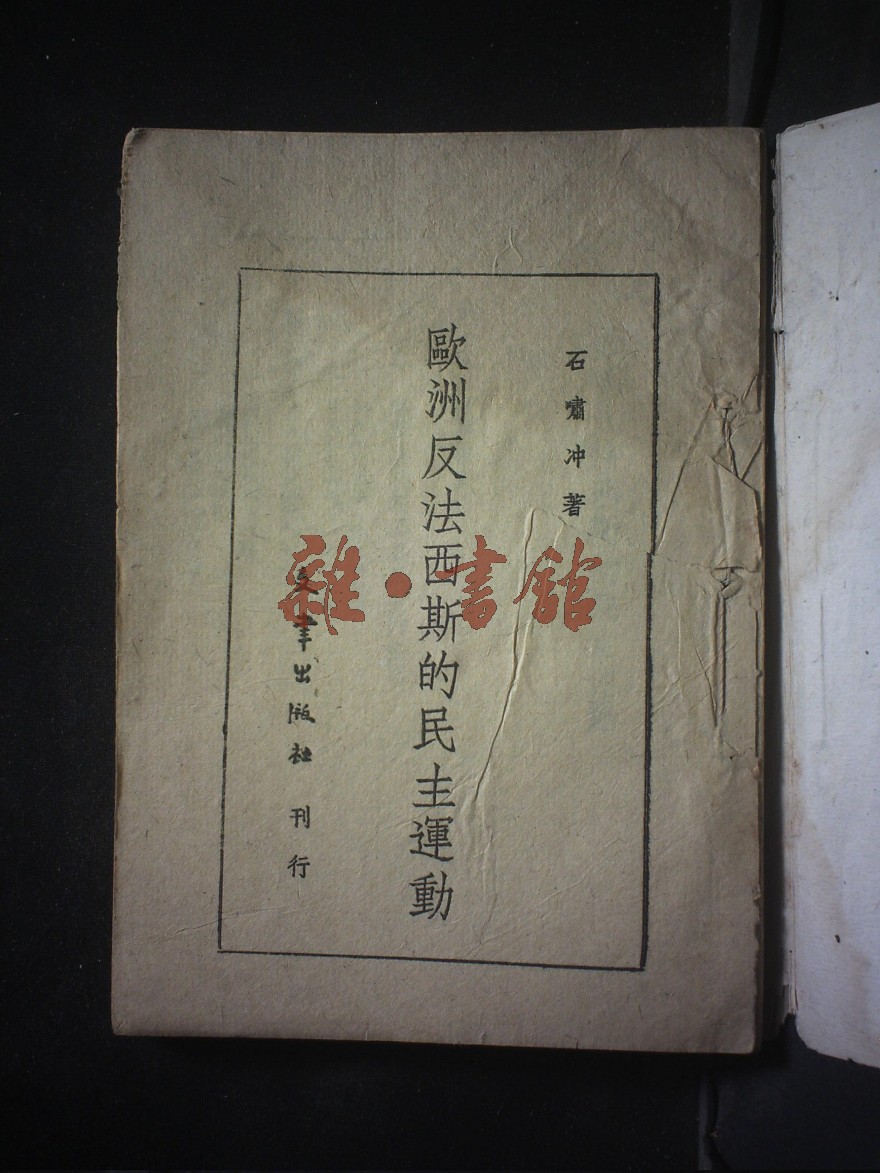 石嘯冲著
歐洲反法西斯的民主運動
文聿出版社 刊行
雜·書館